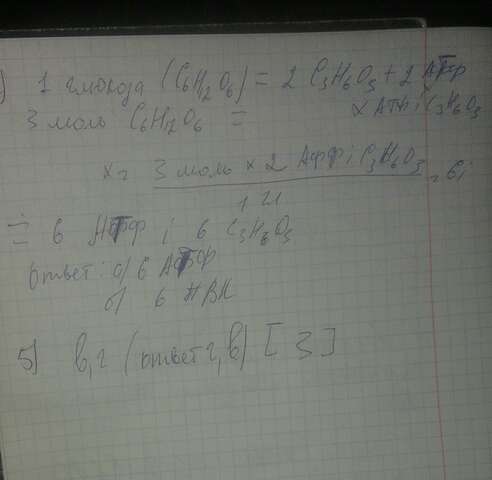 ) 1 глюкоза (C6H12O6) = 2 C3H6O3 + 2 АТФ
3 моль C6H12O6 = x АТФ і C3H6O3
x = 3 моль × 2 АТФ і C3H6O3 = 6;
1
= 6 АТФ і 6 C3H6O3
Ответ: а) 6 АТФ
б) 6 ПВК
5) в, г (ответ г, в) [3]